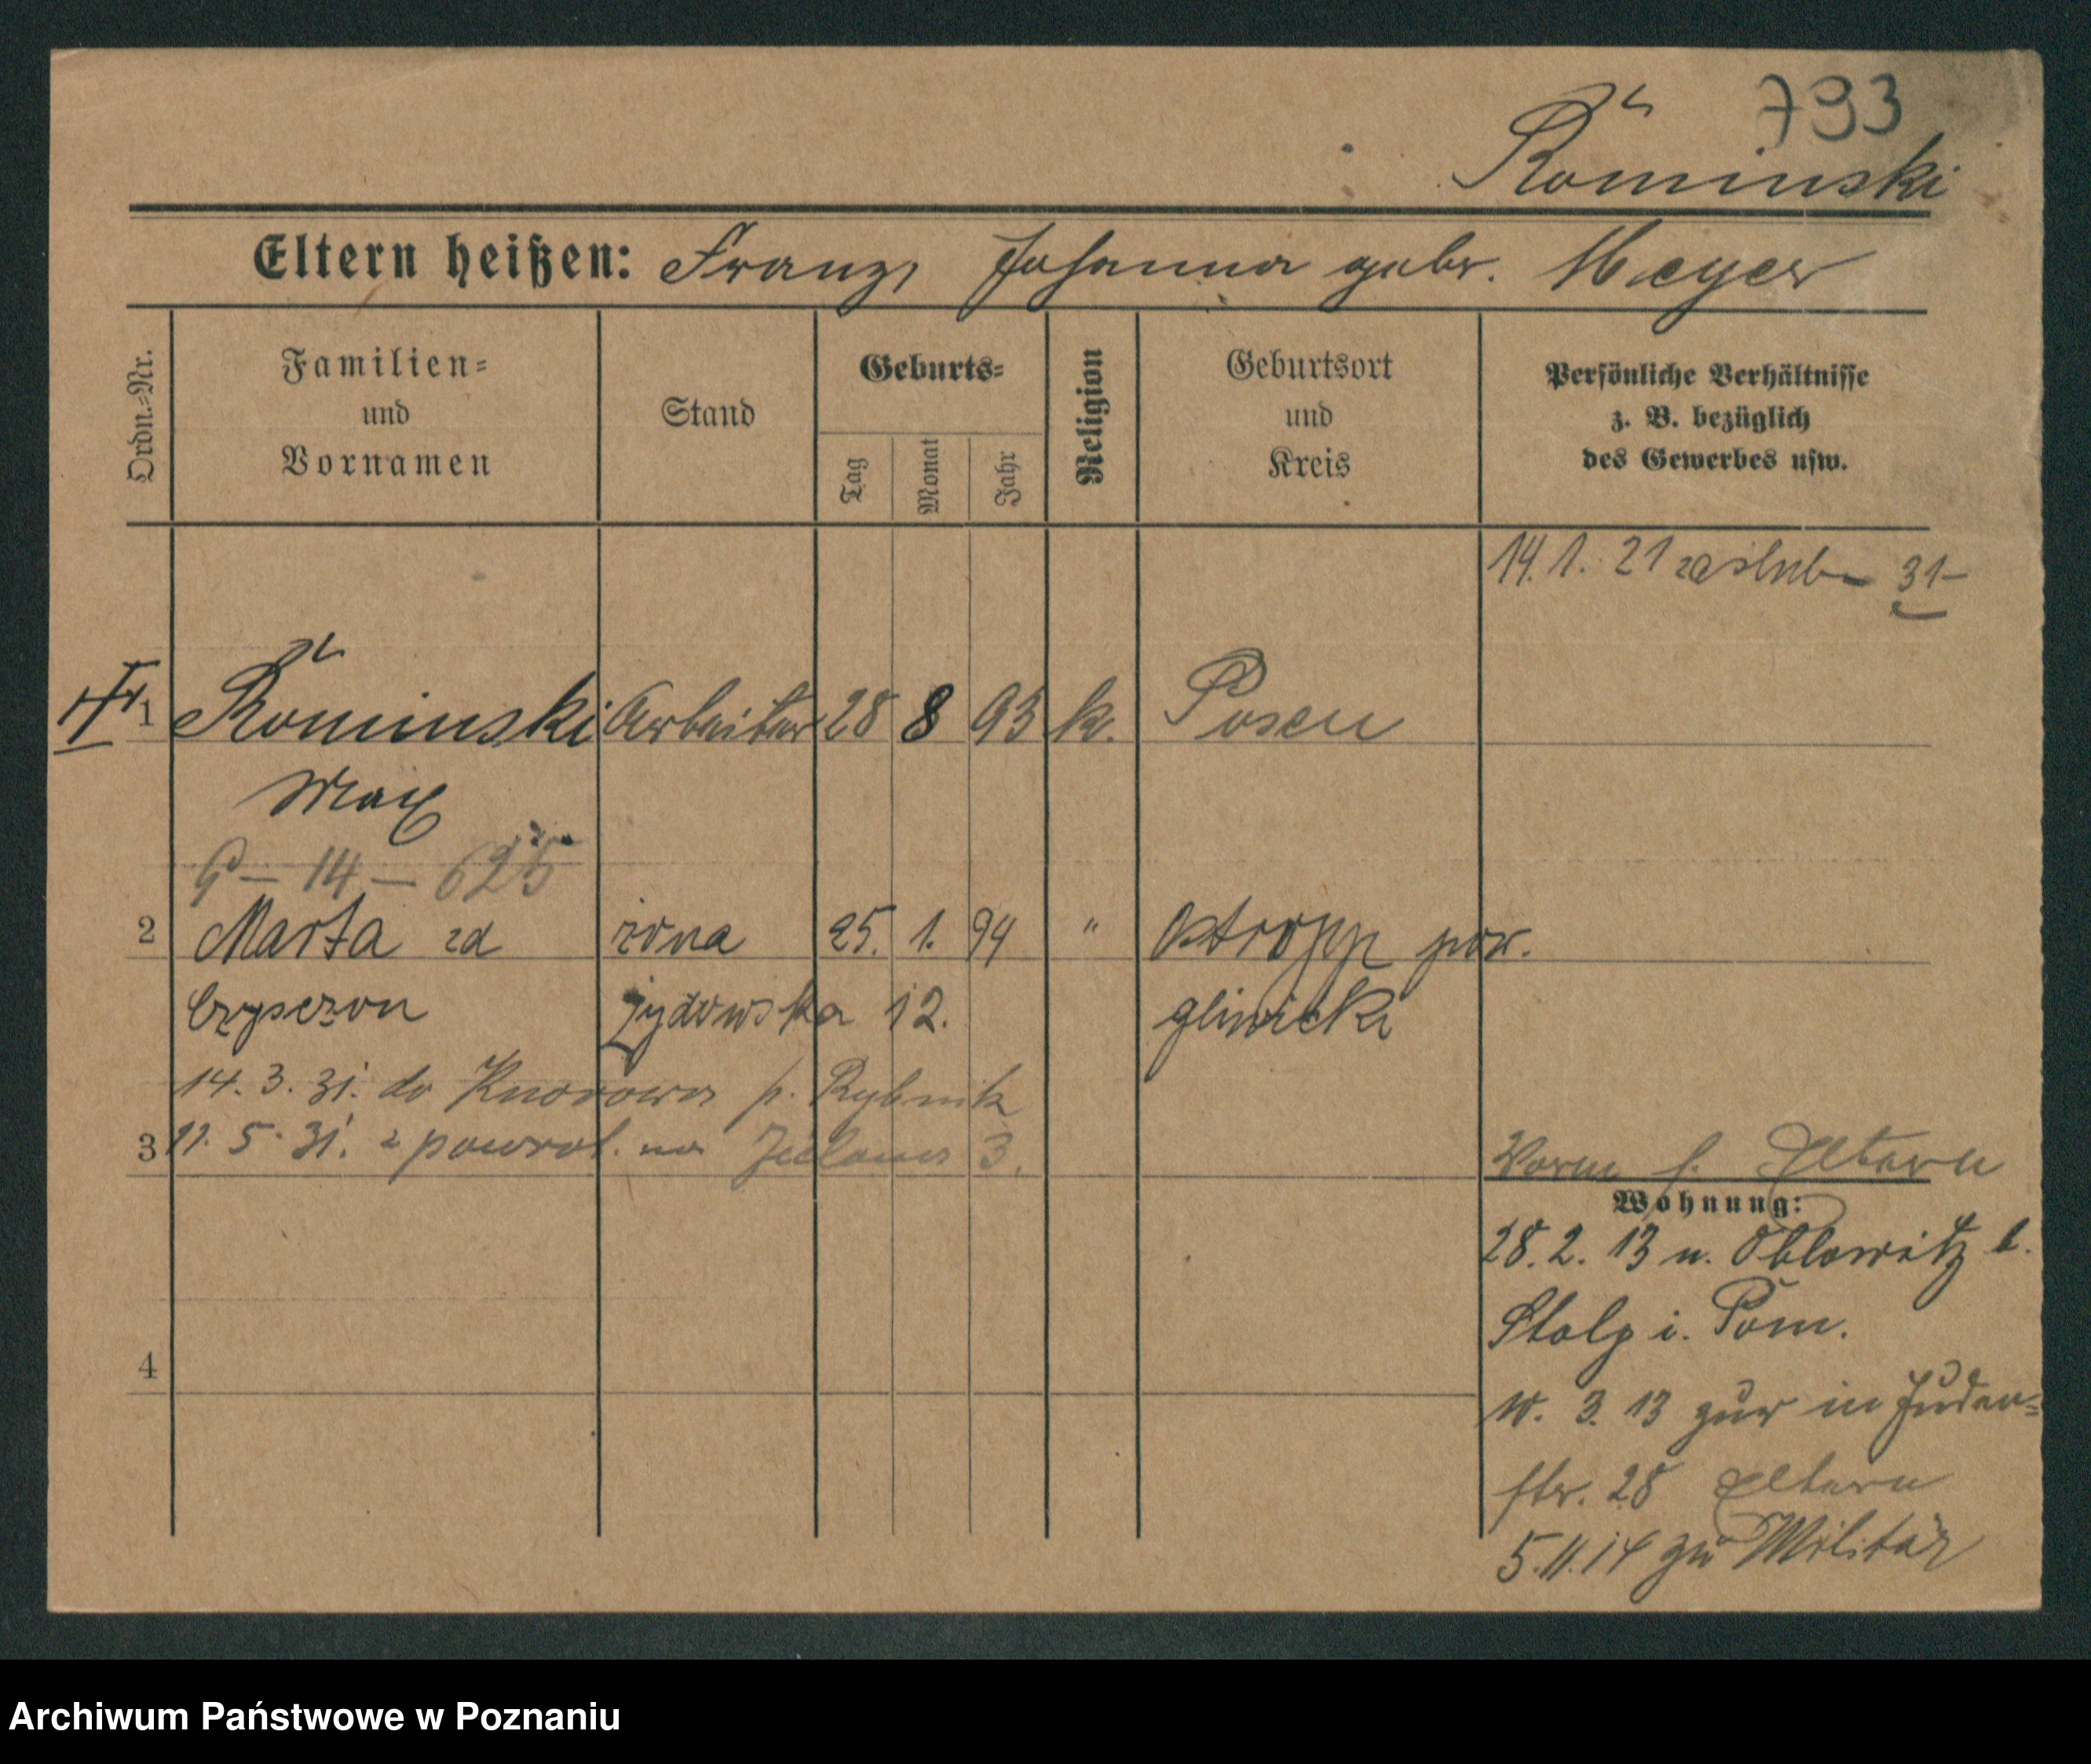 793
Rŭminski
Eltern heißen: Franz, Johanna gebr. Meyer
Ordn.-Nr.
Familien-
und
Vornamen
Stand
Geburts-
Tag
Monat
Jahr
Religion
Geburtsort
und
Kreis
Persönliche Verhältnisse
z. B. bezüglich
des Gewerbes usw.
14. 1. 21 31
1 Rŭminski Arbeiter 28 8 93 k. Posen
Max
G – 14 – 625
2 Marta zd żona 25. 1. 94 " Ostropp pow.
Czypczon żydowska 12. gliwicki
14. 3. 31. do p. Rybnik
3 11. 5. 31. z powrot. na 3.
Eltern
Wohnung:
28. 2. 13 n. Oblowitz b.
Stolp i. Pom.
10. 3. 13 zur in Juden=
str. 28 Eltern
5.11.14 zu Militär
4
Archiwum Państwowe w Poznaniu